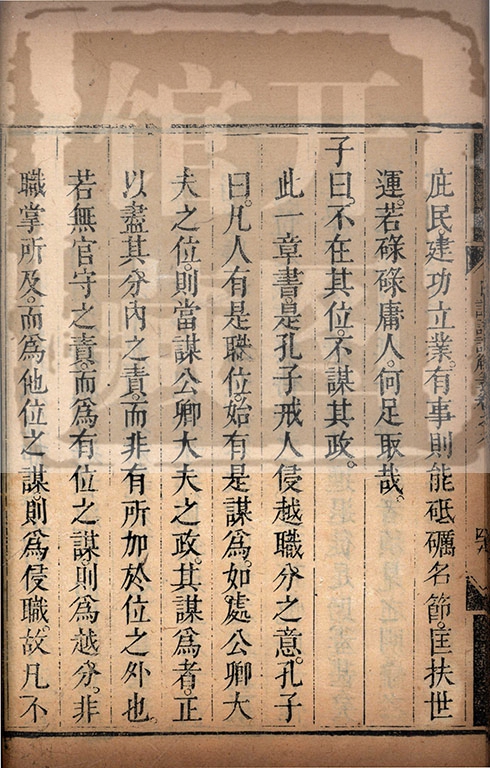 庶民。建功立業。有事則能砥礪名節。匡扶世
運。若碌碌庸人。何足取哉。
子曰。不在其位。不謀其政。
此一章書。是孔子戒人侵越職分之意。孔子
曰。凡人有是職位。始有是謀爲。如處公卿大
夫之位。則當謀公卿大夫之政。其謀爲者。正
以盡其分內之責。而非有所加於位之外也。
若無官守之責。而爲有位之謀。則爲越分。非
職掌所及。而爲他位之謀。則爲侵職。故凡不